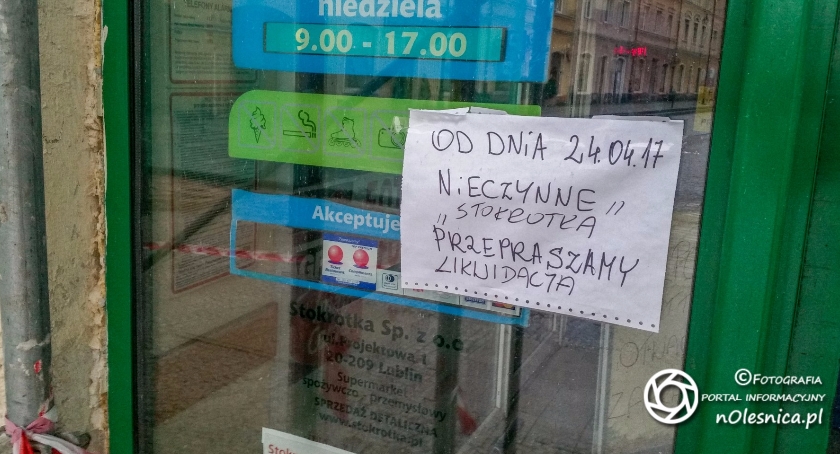 niedziela
9.00 - 17.00
OD DNIA 24.04.17
NIECZYNNE
„STOKROTKA”
PRZEPRASZAMY
LIKWIDACJA
Akceptuje
Stokrotka Sp. z o.o
ul. Projektowa 1
20-209 Lublin
Supermarket
spożywczo - przemysłowy
SPRZEDAŻ DETALICZNA
www.stokrotka.pl
©FOTOGRAFIA
PORTAL INFORMACYJNY
nOlesnica.pl